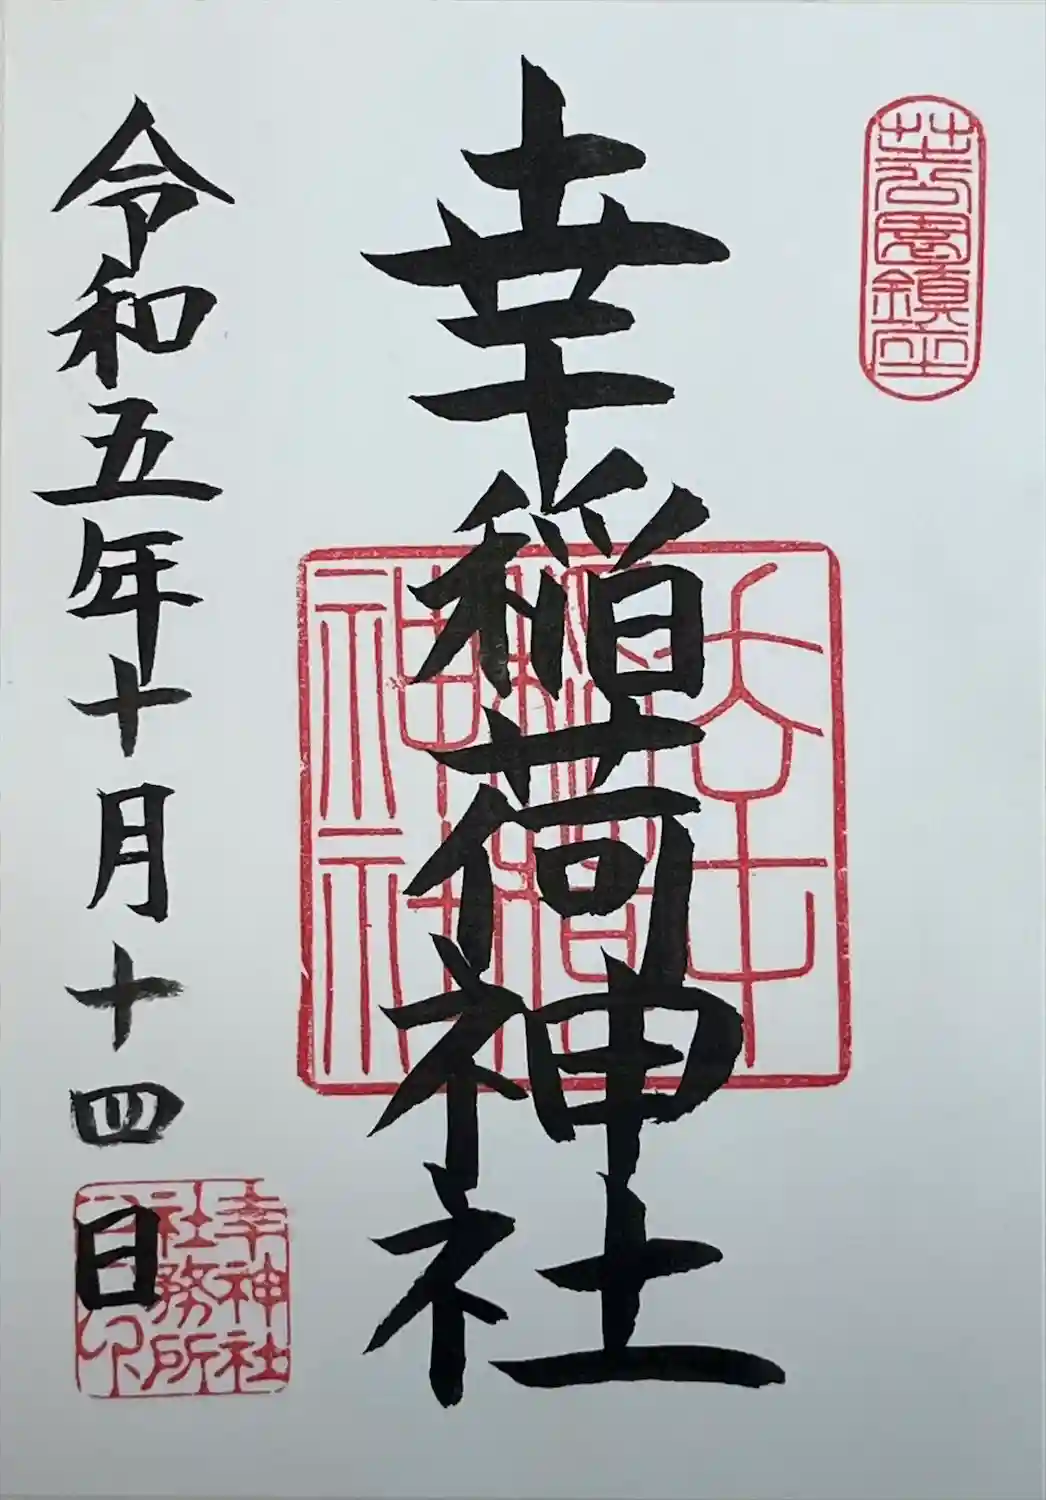 芝公園鎮座
幸稲荷神社
幸稲荷神社
令和五年十月十四日
幸神社
社務所
之印